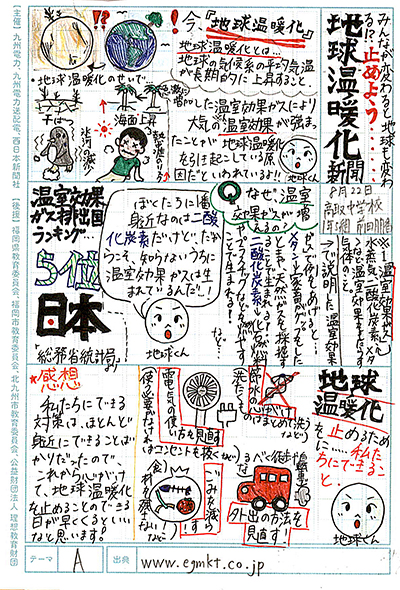 みんなが変わると地球も変わ
る!?止めよう……
地球温暖化
新聞
8月22日
今、『地球温暖化』
地球温暖化とは…
地球の気候系の平均気温
が長期的に上昇すること。
増加した温室効果ガスにより
大気の温室効果が強まっ
たことが地球温暖化
を引き起こしている原
因だといわれている!!
地球くん
・地球温暖化のせいで…
海面上昇
氷河減少
Q なぜ、温室
効果ガスが増
ぼくたちに1番
身近なのは二酸
化炭素だけど、だか
らこそ、知らないうちに
温室効果ガスは生
まれているんだ…!
地球くん
温室効果
ガス排出国
ランキング
5位
日本
「総務省統計局」
より
※1 温室効果ガスとは
水蒸気、二酸化炭素、メタン
など温室効果をもたらす
気体のこと
地球
温暖化
を止めるため
に…私たち
にできるこ
と。
地球くん
節水の心がけ
電気の使
い方を見直す
コンセントを抜くなど
ごみを減らす
外出の方法を
見直す!
★感想
私たちにできる
対策は、ほとんど
身近にできることば
かりだったので、
これから心がけ
て、地球温暖化
を止めることのできる
日が早くくるといい
なと思います。
テーマ A 出典 www.egmkt.co.jp
【主催】九州電力、九州電力送配電、西日本新聞社
【後援】福岡県教育委員会、福岡市教育委員会、北九州市教育委員会、公益財団法人 理想教育財団